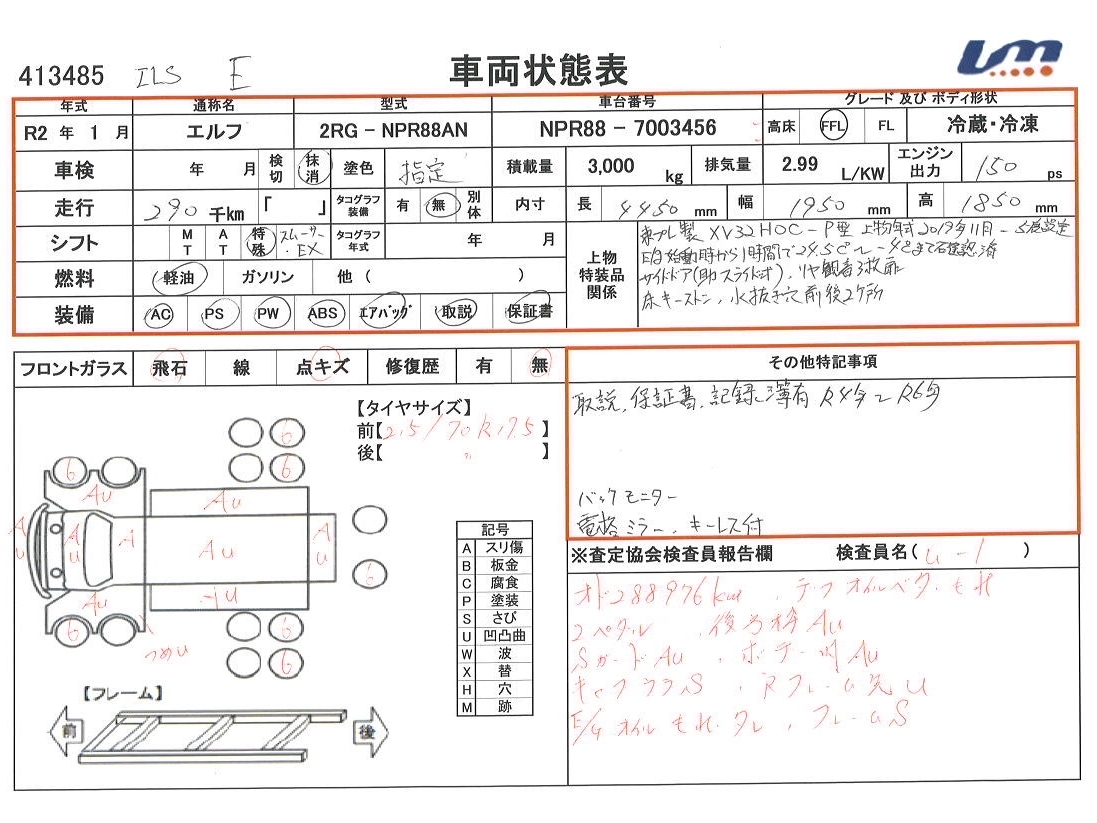 413485 ILS E 車両状態表 um
年式 通称名 型式 車台番号 グレード 及び ボディ形状
R2 年 1 月 エルフ 2RG - NPR88AN NPR88 - 7003456 高床 FFL FL 冷蔵・冷凍
車検 年 月 検切 抹消 塗色 指定 積載量 3,000 kg 排気量 2.99 L/KW エンジン出力 150 ps
走行 290 千km 「 」 タコグラフ装備 有 無 別体 内寸 長 4450 mm 幅 1950 mm 高 1850 mm
シフト MT AT 特殊 スムーサーEX タコグラフ年式 年 月
燃料 軽油 ガソリン 他 ( )
装備 AC PS PW ABS エアバッグ 取説 保証書
上物特装品関係
東プレ製 XV32HOC-P型 上物年式 2019年11月 -5度設定
始動時から1時間で24.5℃〜-4℃まで確認済
サイドドア(助スライド付)、リヤ観音3枚扉
床キーストン、水抜き穴前後2ヶ所
フロントガラス 飛石 線 点キズ 修復歴 有 無
その他特記事項
取説、保証書、記録簿有 R4年〜R6年
バックモニター
電格ミラー、キーレス付
【タイヤサイズ】
前【 2.5/70R17.5 】
後【 〃 】
6 6
6 6
6
6 6
Au Au Au Au A Au Au Au
つめU
記号
A スリ傷
B 板金
C 腐食
P 塗装
S さび
U 凹凸曲
W 波
X 替
H 穴
M 跡
【フレーム】
前 後
※査定協会検査員報告欄 検査員名( U-1 )
オド288976km、デフオイルベタ、もれ
2ペダル、後方枠Au
SガードAu、ボデー内Au
キャブフラS、Rフレーム先U
E/Gオイルもれ、タレ、フレームS